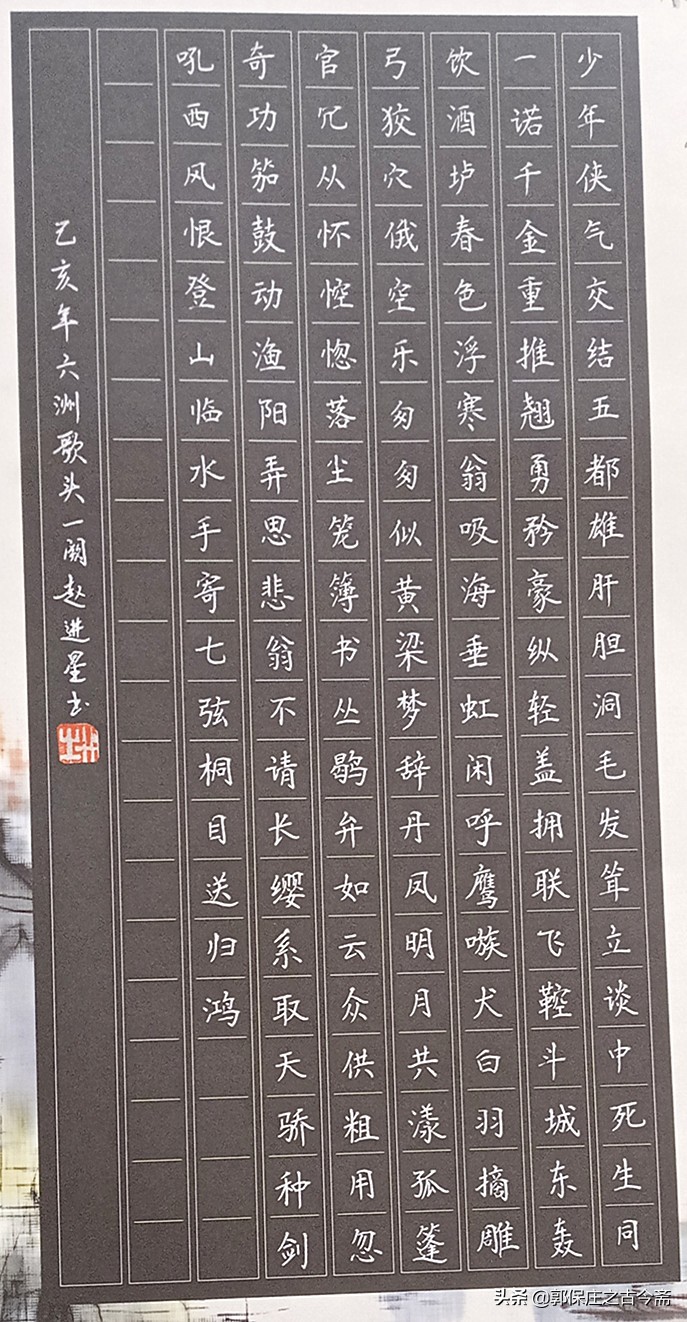 少年侠气交结五都雄肝胆洞毛发耸立谈中死生同
一诺千金重推翘勇矜豪纵轻盖拥联飞鞚斗城东轰
饮酒垆春色浮寒翁吸海垂虹闲呼鹰嗾犬白羽摘雕
弓狡穴俄空乐匆匆似黄梁梦辞丹凤明月共漾孤篷
官冗从怀悾惚落尘笼簿书丛鹖弁如云众供粗用忽
奇功笳鼓动渔阳弄思悲翁不请长缨系取天骄种剑
吼西风恨登山临水手寄七弦桐目送归鸿
己亥年六洲歌头一阕赵进星书
头条 @郭保庄之古今斋